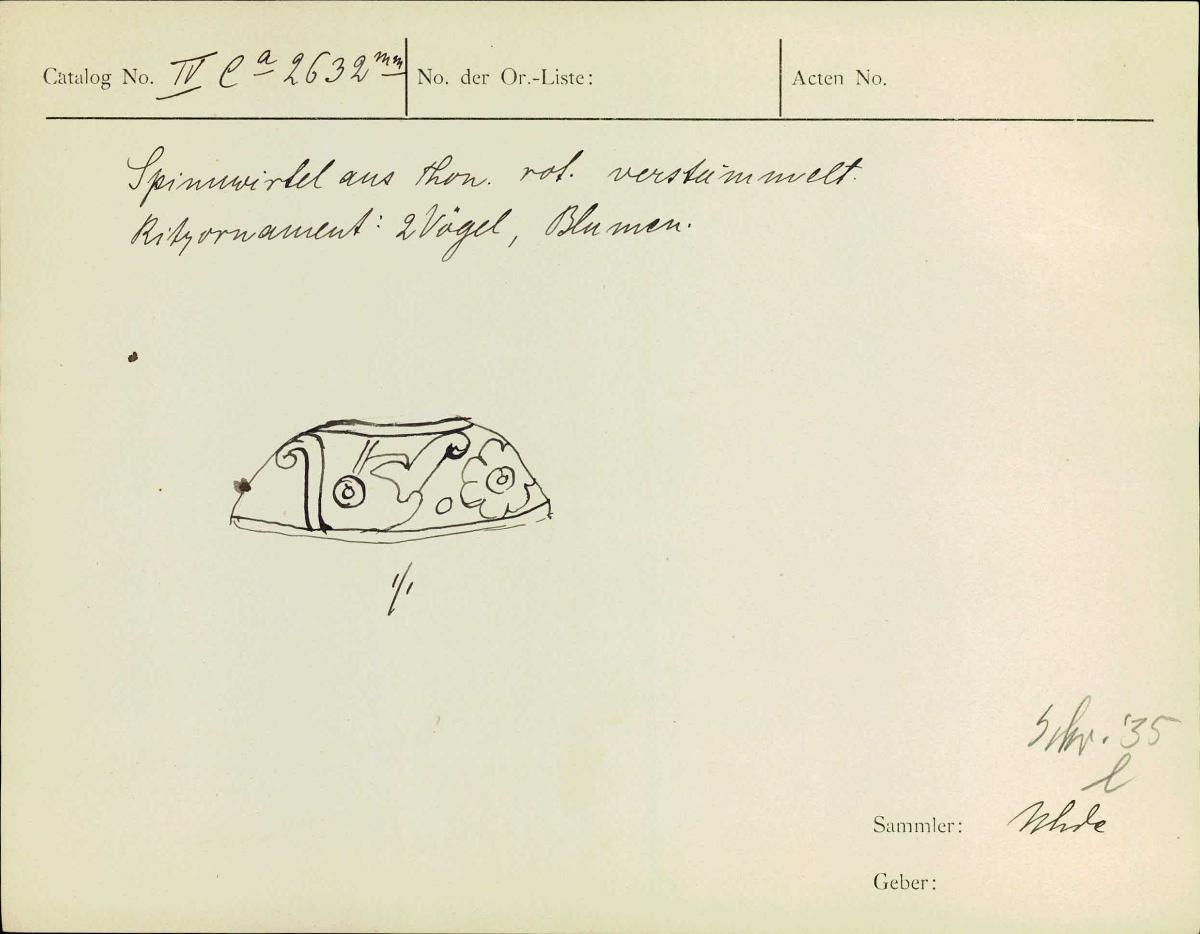 Catalog No. IV Ca 2632 mm No. der Or.-Liste: Acten No.
Spinnwirtel aus Thon. rot. verstümmelt.
Ritzornament: 2 Vögel, Blumen.
1/1
Schr. 35
l
Sammler: Uhde
Geber: